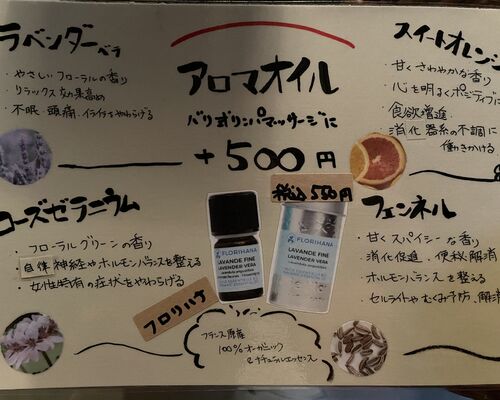 ラベンダーベラ
・やさしいフローラルの香り
・リラックス効果高め
・不眠、頭痛、イライラをやわらげる
アロマオイル
バリ式リンパマッサージに
+500円
税込550円
スイートオレンジ
・甘くさわやかな香り
・心を明るくポジティブ
・食欲増進
・消化器系の不調に
働きかける
ローズゼラニウム
フローラルグリーンの香り
・自律神経やホルモンバランスを整える
・女性特有の症状をやわらげる
FLORIHANA
LAVANDE FINE
LAVENDER VERA
FLORIHANA
LAVANDE FINE
LAVENDER VERA
フロリハナ
フランス原産
100%オーガニック
ナチュラルエッセンス
フェンネル
・甘くスパイシーな香り
・消化促進、便秘解消
・ホルモンバランスを整える
・セルライトやむくみ予防、解消